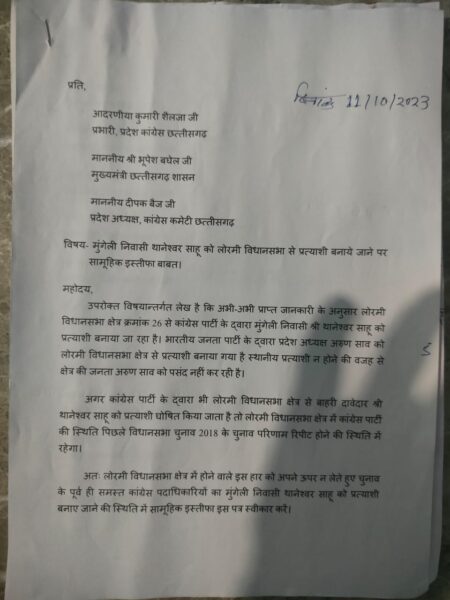 प्रति,
दिनांक 11/10/2023
आदरणीया कुमारी शैलजा जी
प्रभारी, प्रदेश कांग्रेस छत्तीसगढ़
माननीय श्री भूपेश बघेल जी
मुख्यमंत्री छत्तीसगढ़ शासन
माननीय दीपक बैज जी
प्रदेश अध्यक्ष, कांग्रेस कमेटी छत्तीसगढ़
विषय- मुंगेली निवासी थानेश्वर साहू को लोरमी विधानसभा से प्रत्याशी बनाये जाने पर
सामूहिक इस्तीफा बाबत।
महोदय,
उपरोक्त विषयान्तर्गत लेख है कि अभी-अभी प्राप्त जानकारी के अनुसार लोरमी
विधानसभा क्षेत्र क्रमांक 26 से कांग्रेस पार्टी के द्वारा मुंगेली निवासी श्री थानेश्वर साहू को
प्रत्याशी बनाया जा रहा है। भारतीय जनता पार्टी के द्वारा प्रदेश अध्यक्ष अरुण साव को
लोरमी विधानसभा क्षेत्र से प्रत्याशी बनाया गया है स्थानीय प्रत्याशी न होने की वजह से
क्षेत्र की जनता अरुण साव को पसंद नहीं कर रही है।
अगर कांग्रेस पार्टी के द्वारा भी लोरमी विधानसभा क्षेत्र से बाहरी दावेदार श्री
थानेश्वर साहू को प्रत्याशी घोषित किया जाता है तो लोरमी विधानसभा क्षेत्र में कांग्रेस पार्टी
की स्थिति पिछले विधानसभा चुनाव 2018 के चुनाव परिणाम रिपीट होने की स्थिति में
रहेगा।
अतः लोरमी विधानसभा क्षेत्र में होने वाले इस हार को अपने ऊपर न लेते हुए चुनाव
के पूर्व ही समस्त कांग्रेस पदाधिकारियों का मुंगेली निवासी थानेश्वर साहू को प्रत्याशी
बनाए जाने की स्थिति में सामूहिक इस्तीफा इस पत्र स्वीकार करें।